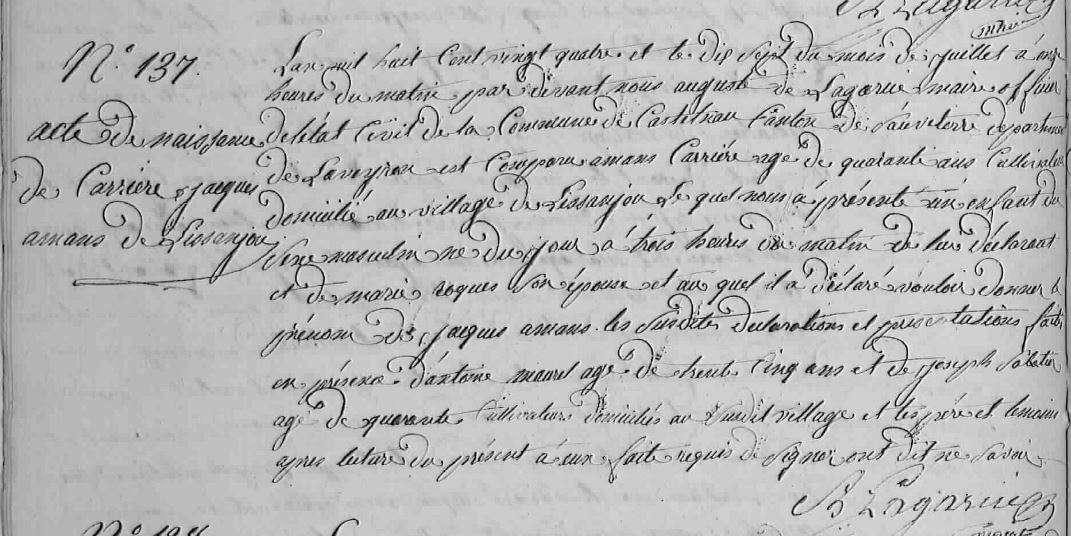 Lagarrie
maire
N.° 137.
acte de naissance
de Carriére jacques
amans de Lissanjou
Lan mil huit Cent vingt quatre et le dix sept du mois de juillet à onze
heures du matin par devant nous auguste de Lagarrie maire officier
de létat Civil de la Commune de Castelnau Canton de Sauveterre departement
de Laveyron est Comparu amans Carriére agé de quarante ans Cultivateur
domicilié au village de Lissanjou Le quel nous à présenté un enfant du
Sexe masculin né du jour à trois heures du matin de lui déclarant
et de marie roques Son épouse et au quel il à déclaré vouloir donner le
prénom de jacques amans. les Susdites declarations et présentations faites
en présence d'antoine maurel agé de trente Cinq ans et de joseph Sabatier
agé de quarante Cultivateurs domiciliés au Susdit village et les pére et temoins
apres lecture du présent à eux faite requis de Signer ont dit ne Savoir
Lagarrie
N.°